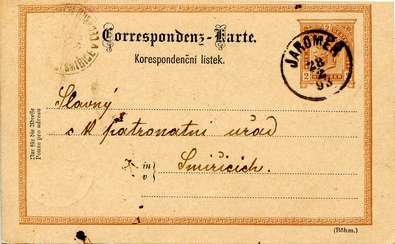 Correspondenz-Karte.
Korespondenční listek.
JAROMĚŘ
28
93
2
Slavný
c. k. patronatní úřad
in
v
Smiřicích.
Nur für die Adresse
Pouze pro adresu
(Böhm.)